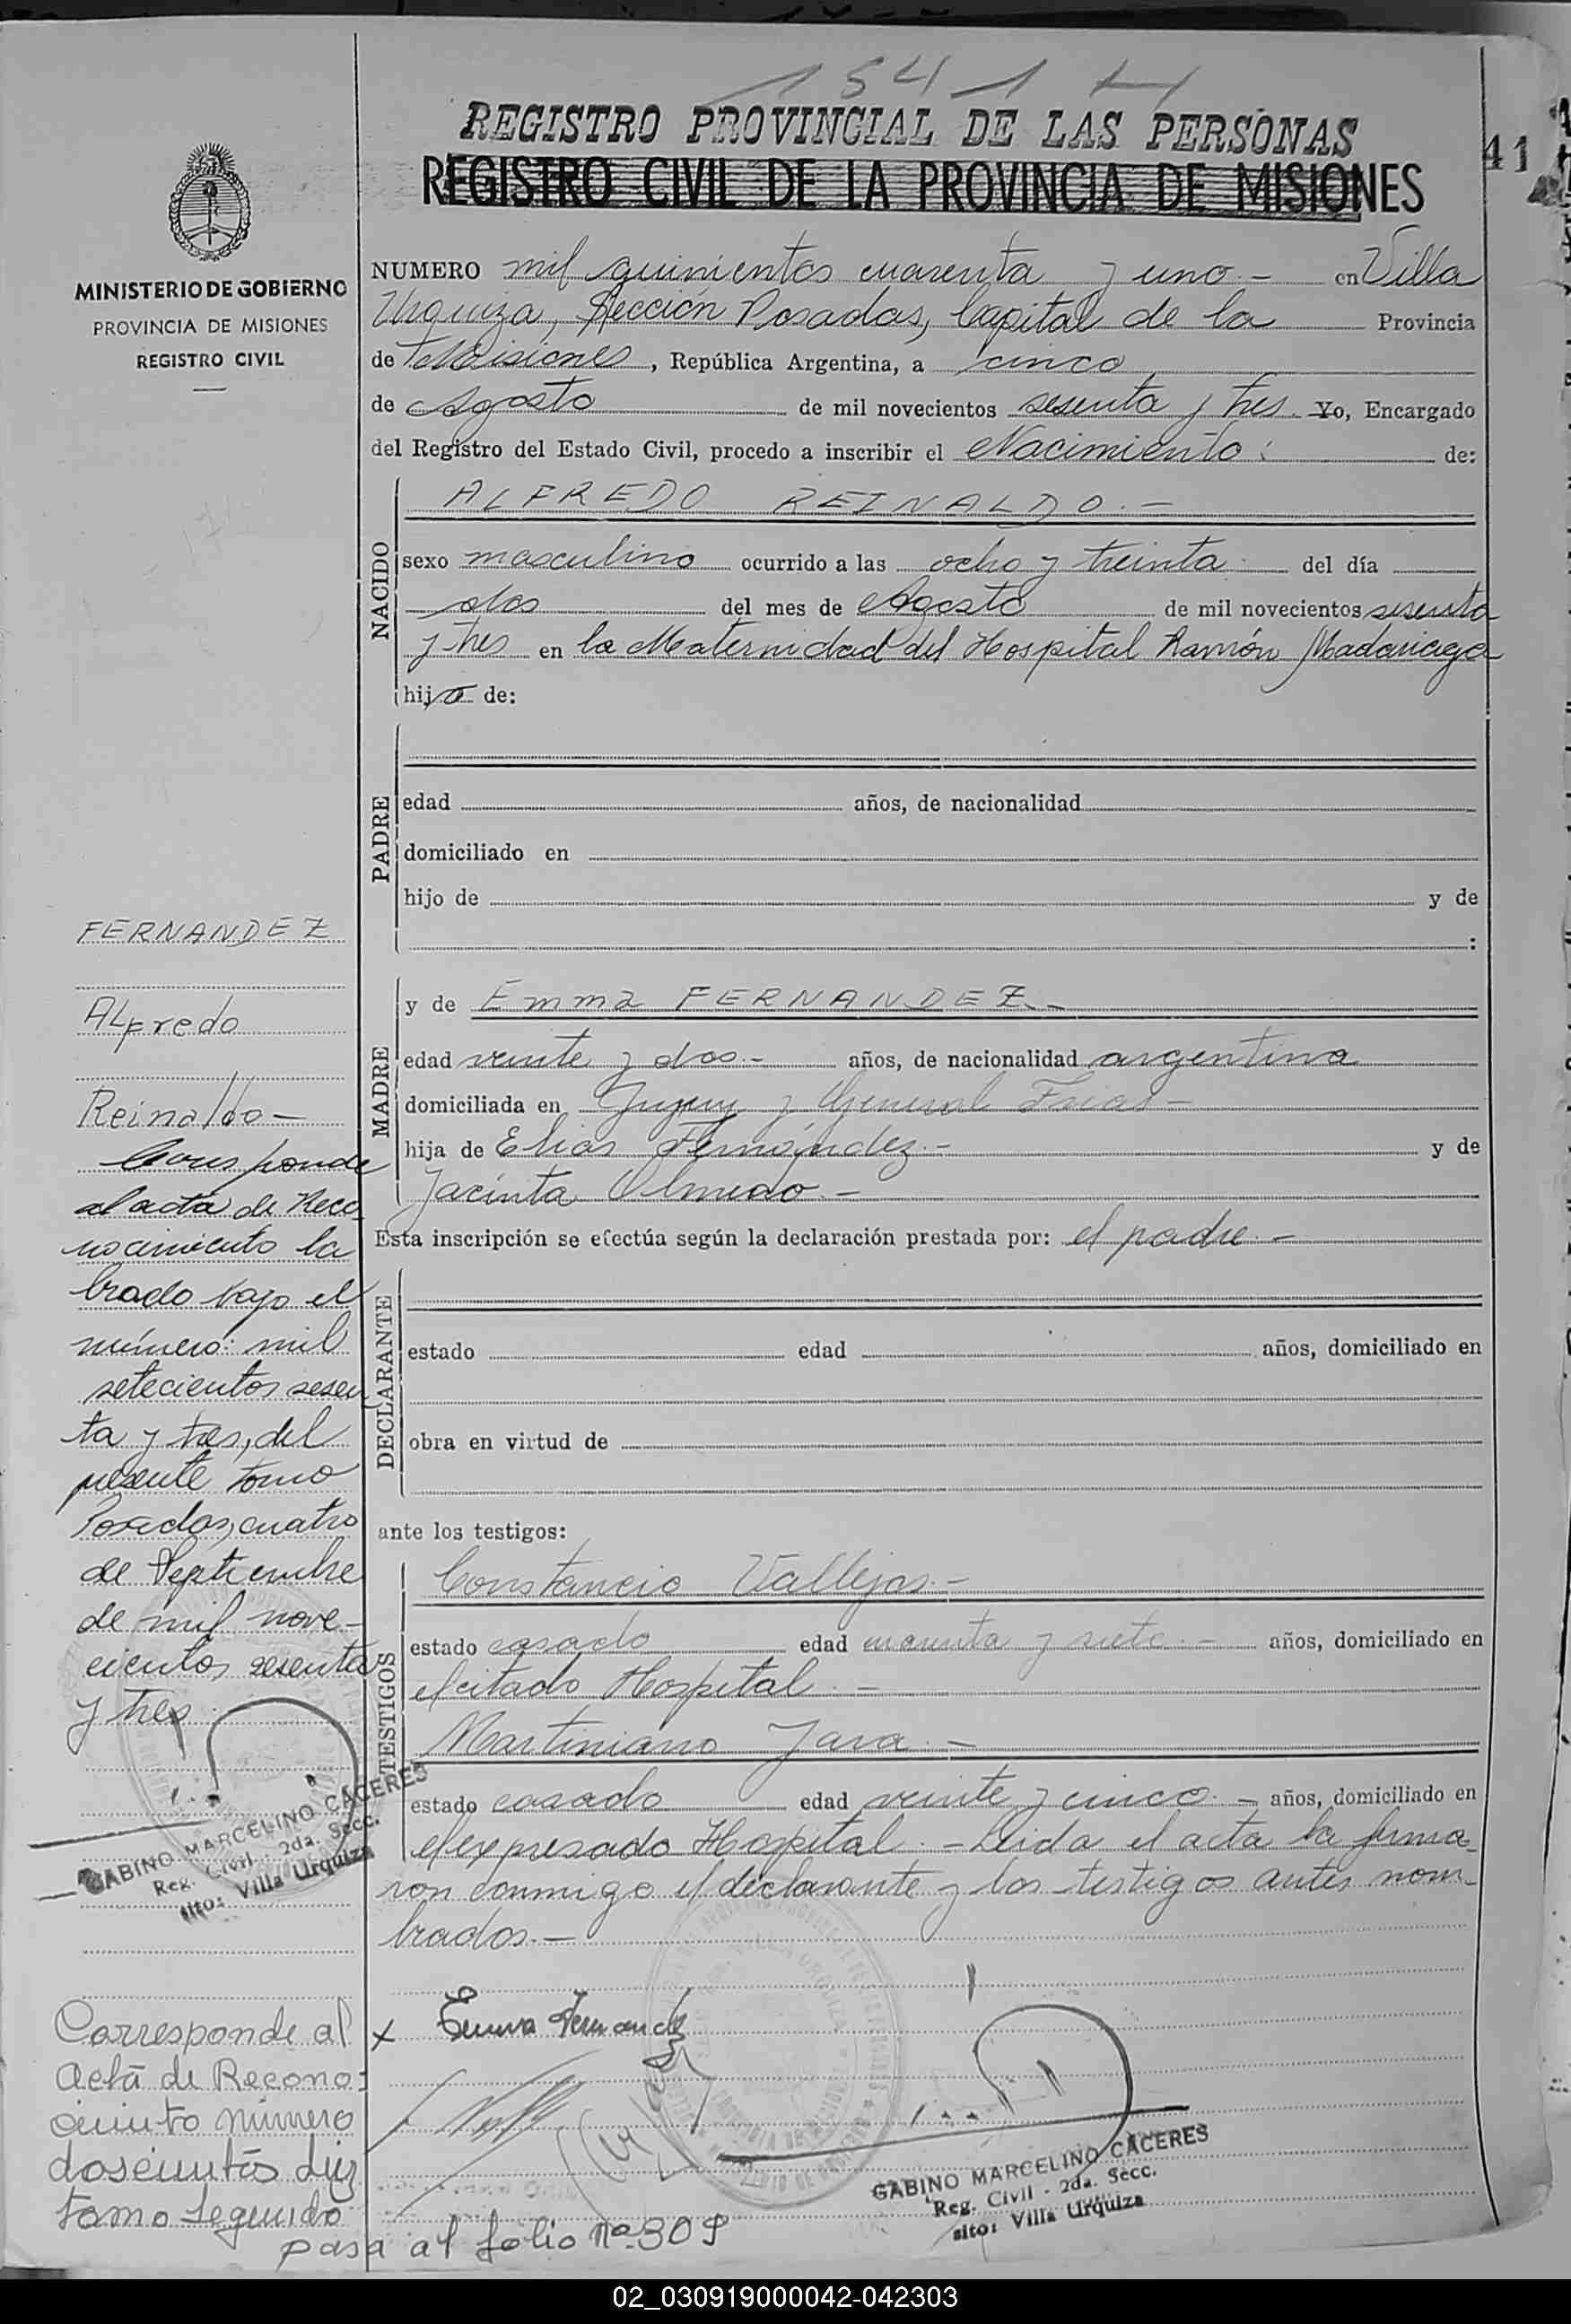 1541
REGISTRO PROVINCIAL DE LAS PERSONAS
REGISTRO CIVIL DE LA PROVINCIA DE MISIONES
41
MINISTERIO DE GOBIERNO
PROVINCIA DE MISIONES
REGISTRO CIVIL
NUMERO mil quinientos cuarenta y uno.- en Villa
Urquiza, Sección Posadas, Capital de la Provincia
de Misiones, República Argentina, a cinco
de Agosto de mil novecientos sesenta y tres. Yo, Encargado
del Registro del Estado Civil, procedo a inscribir el Nacimiento: de:
NACIDO
ALFREDO REINALDO.-
sexo masculino ocurrido a las ocho y treinta del día
dos del mes de Agosto de mil novecientos sesenta
y tres en la Maternidad del Hospital Ramón Madariaga
hijo de:
PADRE
edad años, de nacionalidad
domiciliado en
hijo de y de
:
MADRE
y de Emma FERNANDEZ.-
edad veinte y dos.- años, de nacionalidad argentina
domiciliada en Jujuy y General Frias-
hija de Elias Fernández.- y de
Jacinta Olmedo.-
Esta inscripción se efectúa según la declaración prestada por: el padre.-
DECLARANTE
estado edad años, domiciliado en
obra en virtud de
ante los testigos:
TESTIGOS
Constancio Vallejos.-
estado casado edad cuarenta y siete.- años, domiciliado en
el citado Hospital.-
Martiniano Jara.-
estado casado edad veinte y cinco.- años, domiciliado en
el expresado Hospital.- Leida el acta la firma-
ron conmigo el declarante y los testigos antes nom-
brados.-
x Emma Fernandez
GABINO MARCELINO CACERES
Reg. Civil - 2da. Secc.
sito: Villa Urquiza
FERNANDEZ
Alfredo
Reinaldo-
Corresponde
al acta de Reco-
nocimiento la
brado bajo el
número: mil
setecientos sesen
ta y tres, del
presente tomo
Posadas, cuatro
de Septiembre
de mil nove-
cientos sesenta
y tres.
GABINO MARCELINO CACERES
Reg. Civil - 2da. Secc.
sito: Villa Urquiza
Corresponde al
acta de Recono=
cimiento número
doscientos diez
tomo segundo
pasa al folio nº 309
02_030919000042-042303